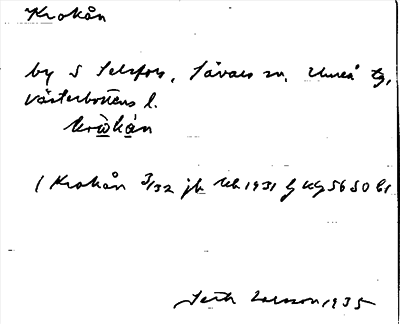 Krokån
by S Selsfors, Sävars sn, Umeå tg,
Västerbottens l.
kròkán
( Krokån 3/32 jb 1931 Kg 5650 61
Seth Larsson 1935